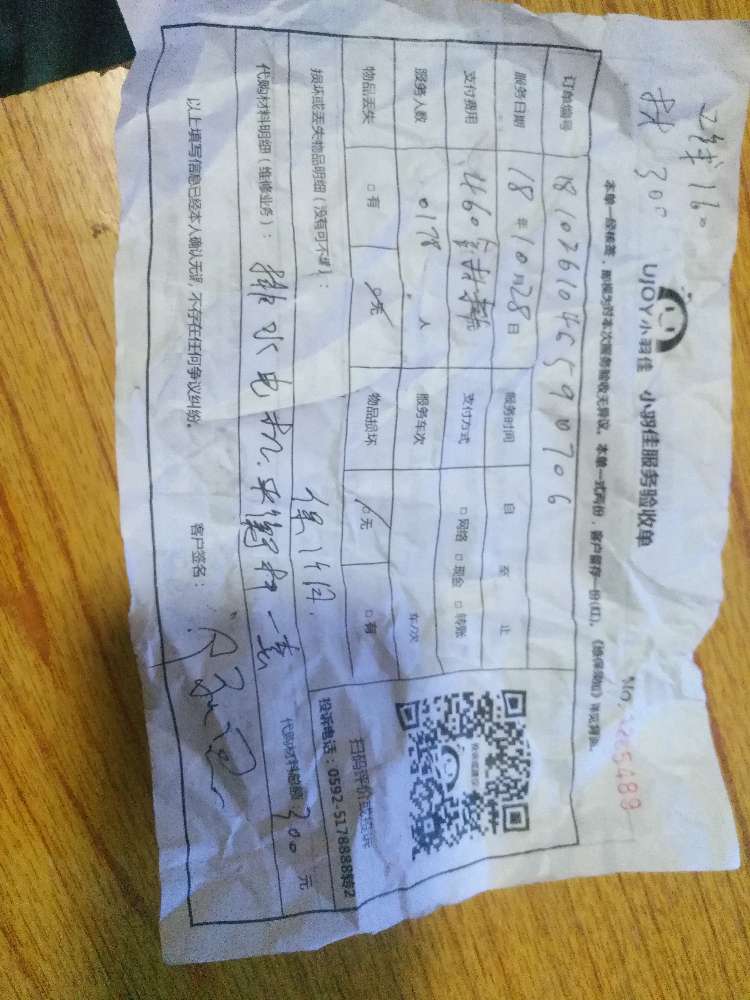 工钱160
材300
UJOY小羽佳 小羽佳服务验收单
No. 265489
本单一经核签，即视为对本次服务验收无异议。本单一式两份，客户留存一份(红)。《维保须知》详见背面。
订单编号 1810261045590706
服务日期 18年10月28日 服务时间 自 至 止
支付费用 460含材料 支付方式 □网络 □现金 □转账
服务人数 0178 人 服务车次 车/次
物品丢失 □有 □无 物品损坏 □无 □有
损坏或丢失物品明细（没有可不填）：
扫码评价或投诉
投诉电话：0592-5178888转2
代购材料明细（维修业务）：排水电机、平衡杆一套 代购材料总额 300 元
以上填写信息已经本人确认无误，不存在任何争议纠纷。 客户签名：